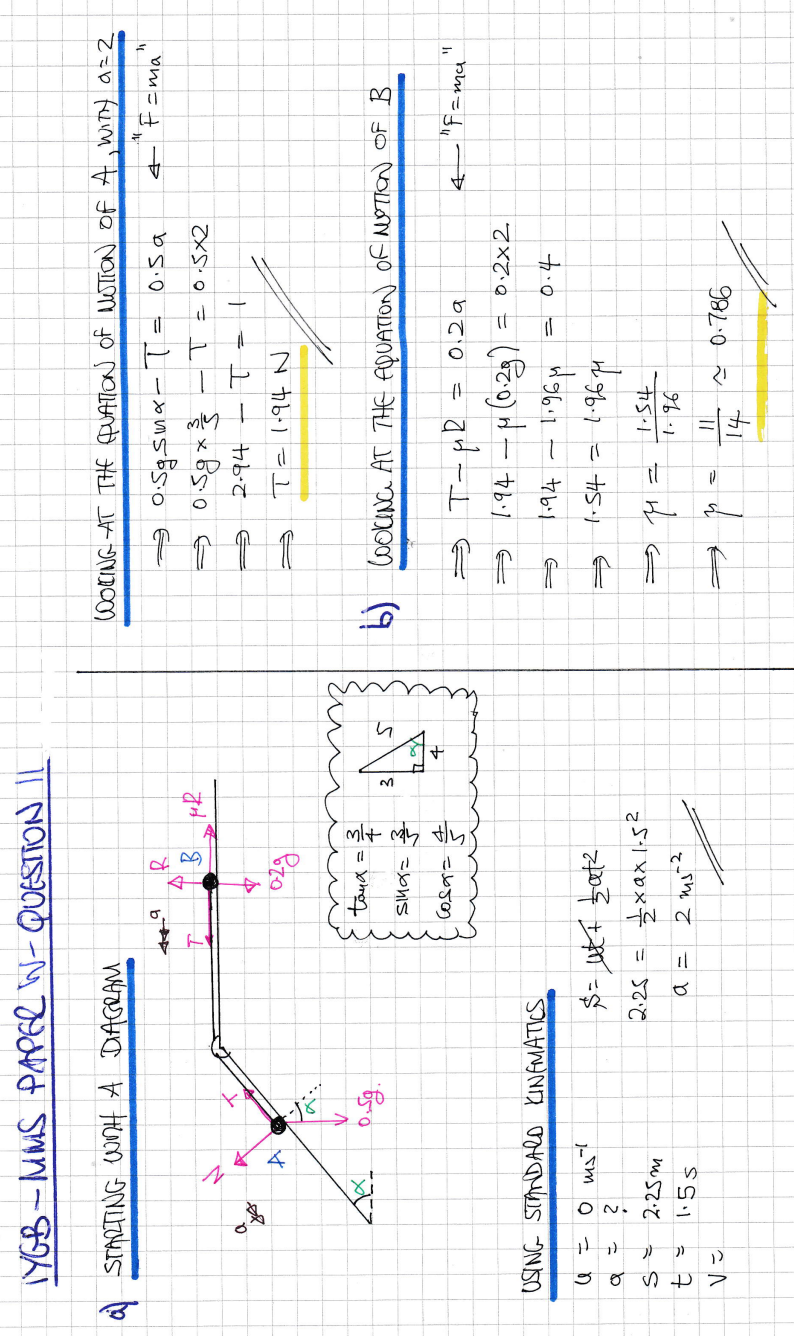 IYGB – MMS PAPER W – QUESTION 11
a) STARTING WITH A DIAGRAM
a
N
T
A
α
0.5g
α
a
T
R
B
μR
0.2g
tanα = 3/4
sinα = 3/5
cosα = 4/5
3
5
4
α
USING STANDARD KINEMATICS
u = 0 ms⁻¹
a = ?
s = 2.25m
t = 1.5s
v =
s = ut + ½at²
2.25 = ½ × a × 1.5²
a = 2 ms⁻²
LOOKING AT THE EQUATION OF MOTION OF A, WITH a=2
⇒ 0.5g sinα − T = 0.5a ← "F=ma"
⇒ 0.5g × 3/5 − T = 0.5×2
⇒ 2.94 − T = 1
⇒ T = 1.94 N
b) LOOKING AT THE EQUATION OF MOTION OF B
⇒ T − μR = 0.2a ← "F=ma"
⇒ 1.94 − μ(0.2g) = 0.2×2
⇒ 1.94 − 1.96μ = 0.4
⇒ 1.54 = 1.96μ
⇒ μ = 1.54/1.96
⇒ μ = 11/14 ≈ 0.786